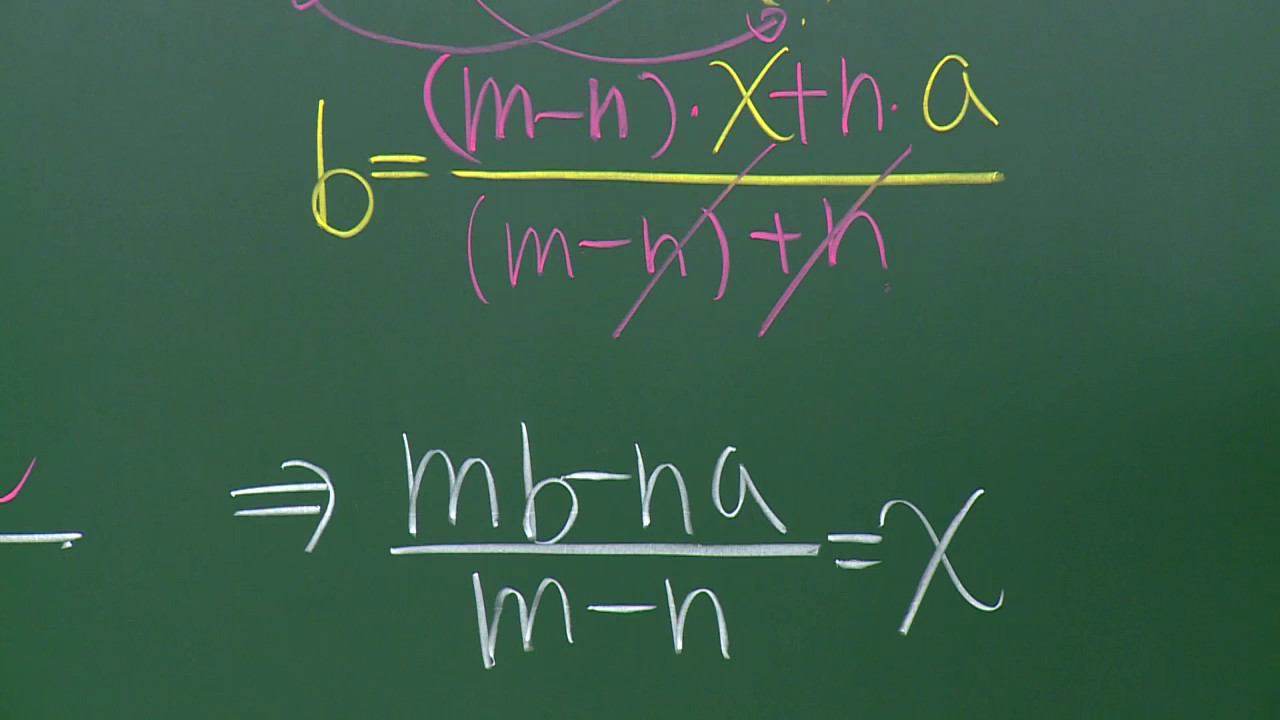 b = ((m-n)·x + n·a) / ((m-n)+n)
⇒ (mb-na) / (m-n) = x